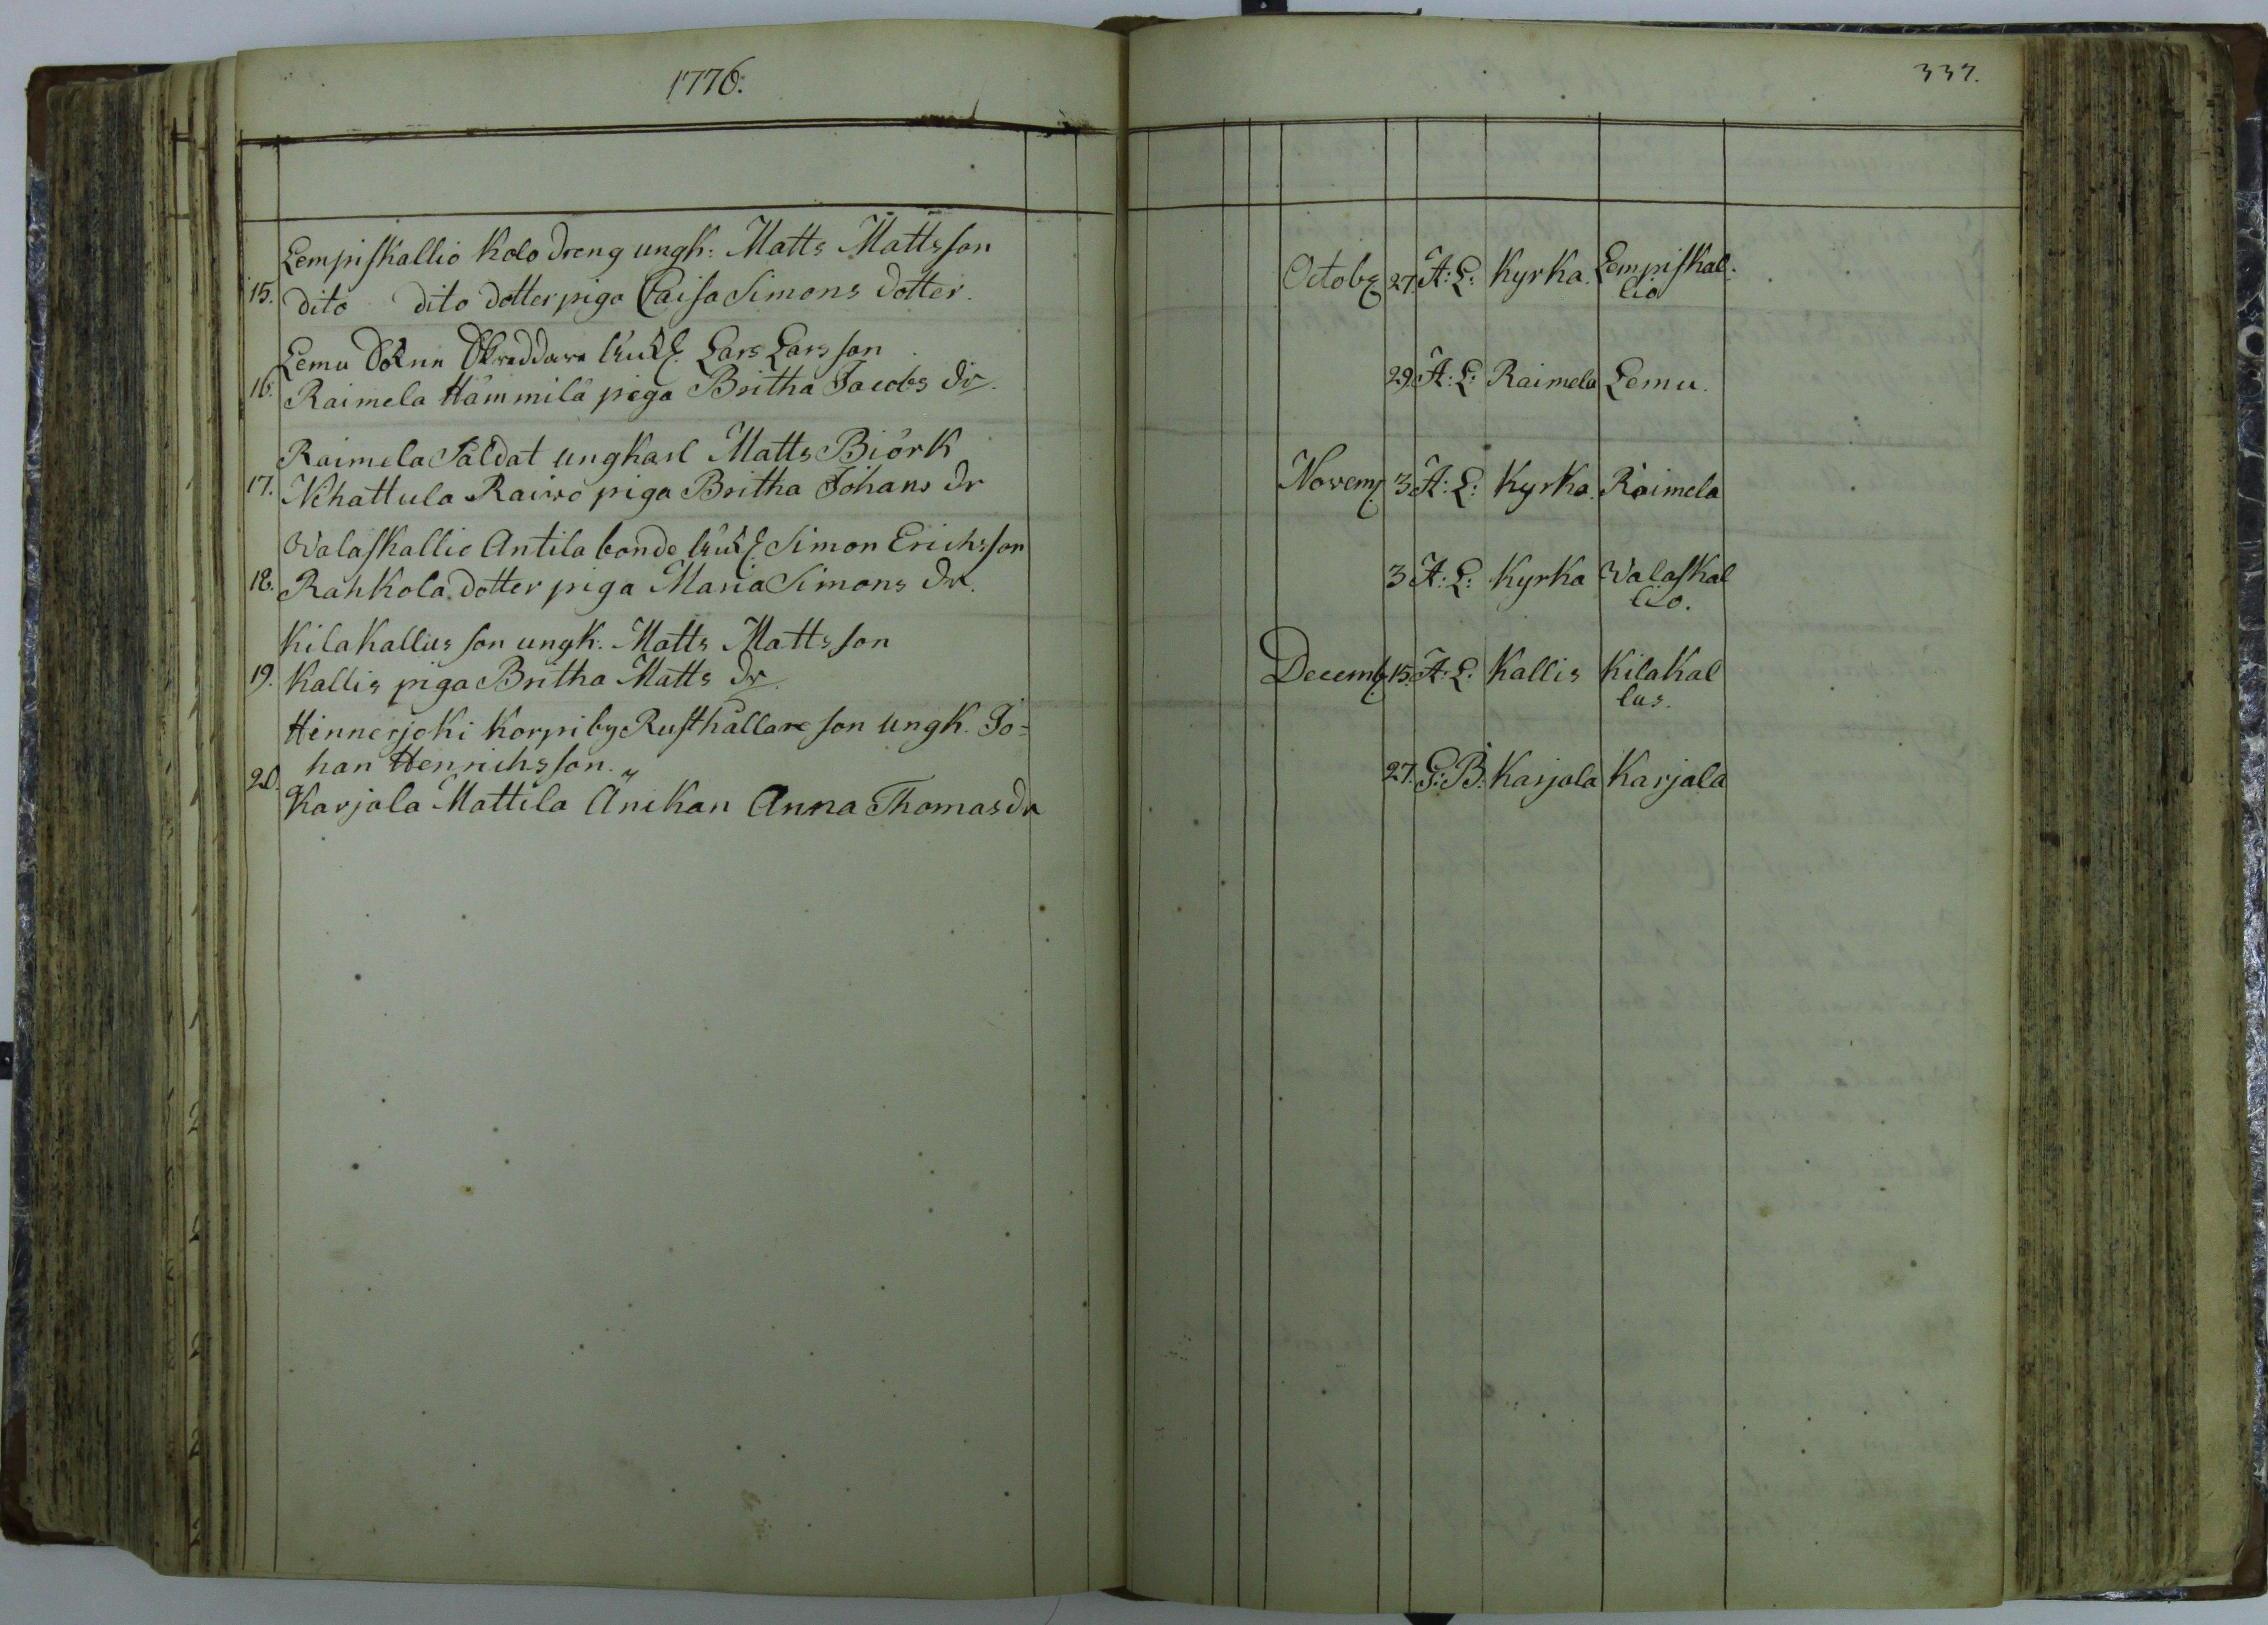 1776.
Lempiskallio Kolo dreng ungk: Matts Mattsson
15. dito dito dotter piga Caisa Simons dotter.
Lemu Skreddare Lars Larsson
16. Raimela Hämmilä piga Britha Jacobs dr.
Raimela Saldat ungkarl Matts Biörk
17. Nehattula Raiwo piga Britha Johans dr
Walaskallio Antila bonde Simon Erichsson
18. Rahkola dotter piga Maria Simons dr.
Kilakallus son ungk. Matts Mattsson
19. Kallis piga Britha Matts dr.
Hinnerjoki Korpi by Rusthållare son ungk. Jo=
han Henrichsson.
20. Karjala Mattila Änkan Anna Thomas dr
337.
October 27. A: L: Kyrka. Lempiskal-
lio
29. A: L: Raimela Lemu.
Novem 3 A: L: Kyrka. Raimela
3 A: L: Kyrka Walaskal
lio.
Decemb 15. A: L: Kallis Kilakal
lus.
27. G: B: Karjala Karjala